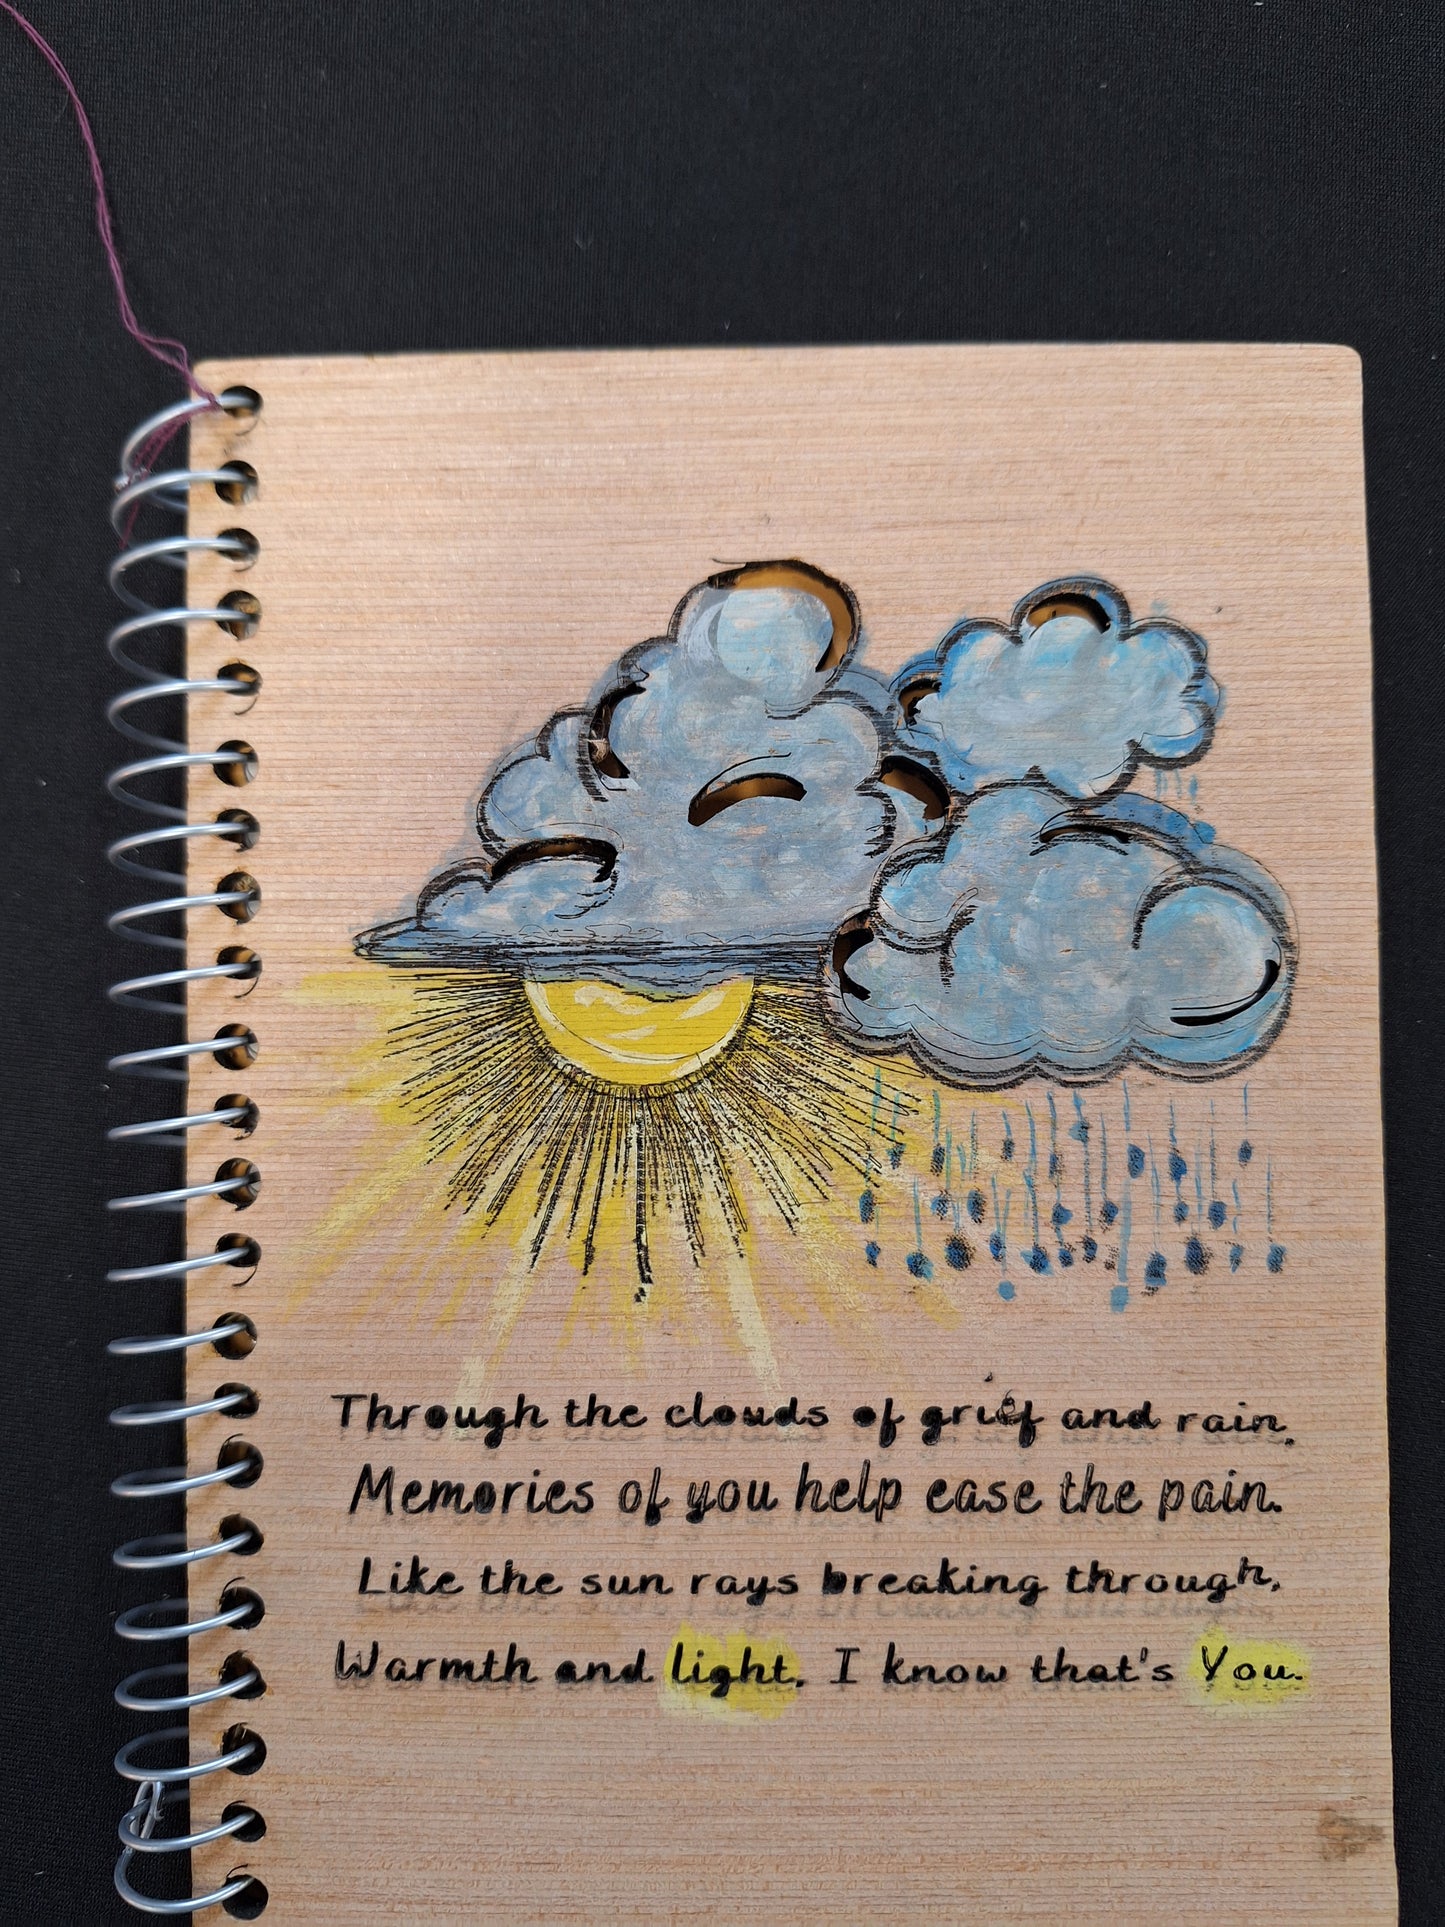 Through the clouds of grief and rain.
Memories of you help ease the pain.
Like the sun rays breaking through,
Warmth and light, I know that's You.